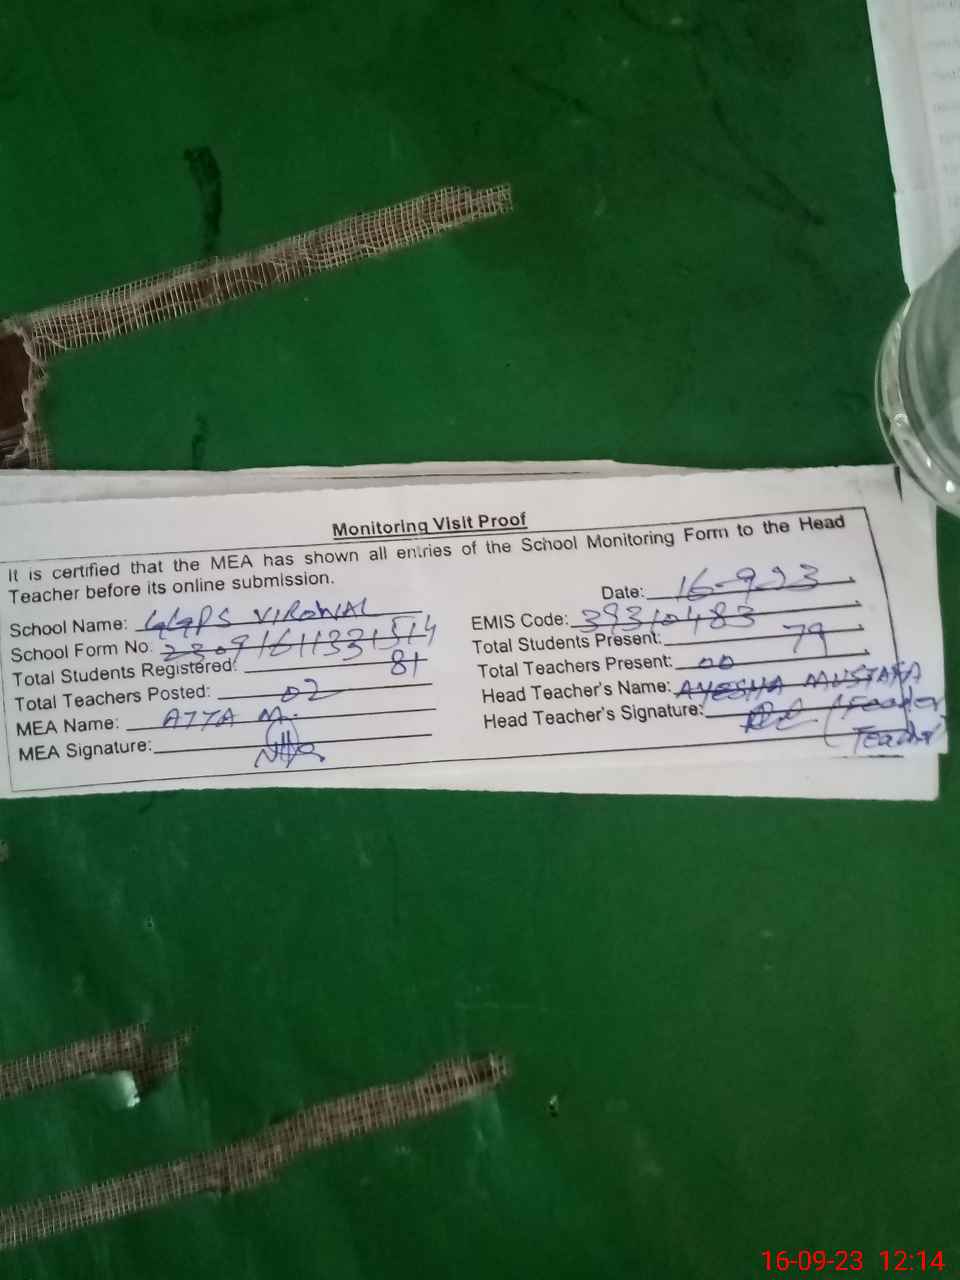 Monitoring Visit Proof
It is certified that the MEA has shown all entries of the School Monitoring Form to the Head
Teacher before its online submission.
Date: 16-9-23
School Name: GGPS VIROWAL
EMIS Code: 39310483
School Form No: 23091611331514
Total Students Present: 79
Total Students Registered: 81
Total Teachers Present: 00
Total Teachers Posted: 02
Head Teacher's Name: AYESHA MUSTAFA
MEA Name: ATTA M.
Head Teacher's Signature: (Feeder
Teacher)
MEA Signature:
16-09-23 12:14